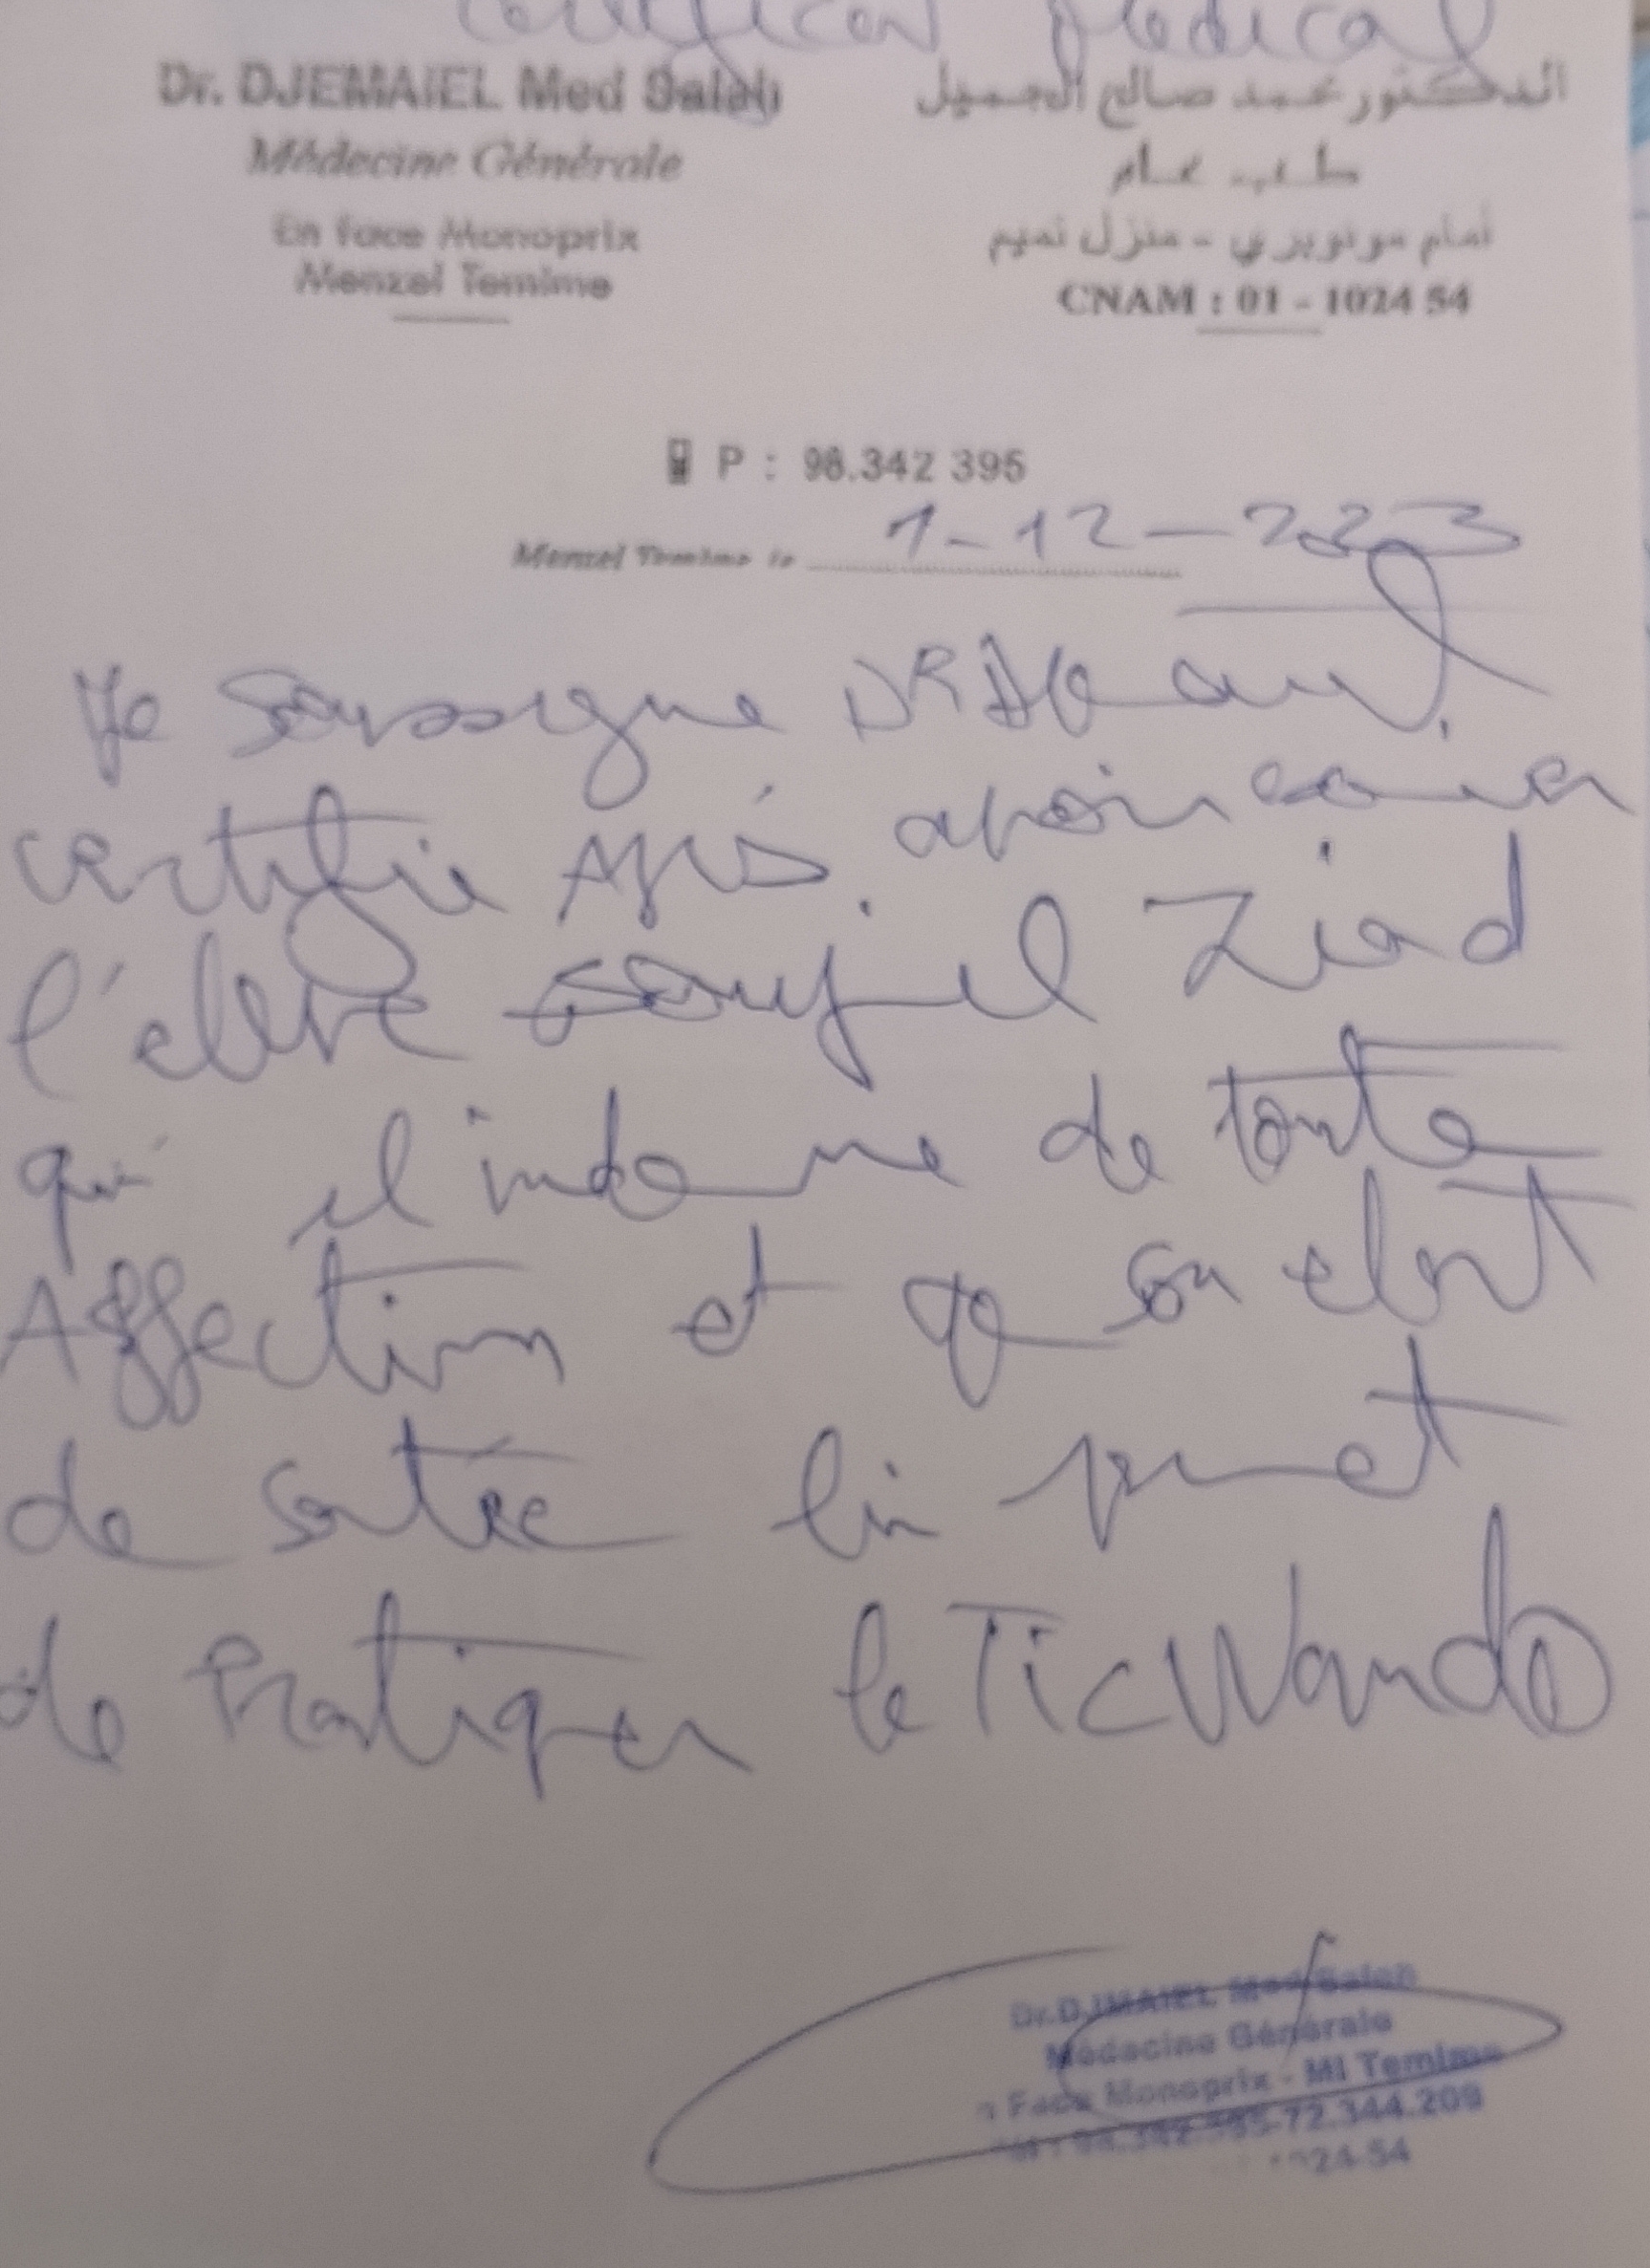 Certificat Médical
Dr. DJEMAIEL Med Salah
Médecine Générale
En face Monoprix
Menzel Temime
الدكتور محمد صالح الجميل
طب عام
أمام مونوبري - منزل تميم
CNAM : 01 - 1024 54
P : 98.342 395
Menzel Temime le 1-12-2023
Je soussigne DR
certifie Après avoir
l'élève Ziad
qui il indemne de toute
Affection et que son etat
de santée lui permet
de Pratiquer le TicWando
Dr.DJMAIEL Med Saleh
Médecine Générale
Face Monoprix - Ml Temime
98.342.395-72.344.209
1024-54